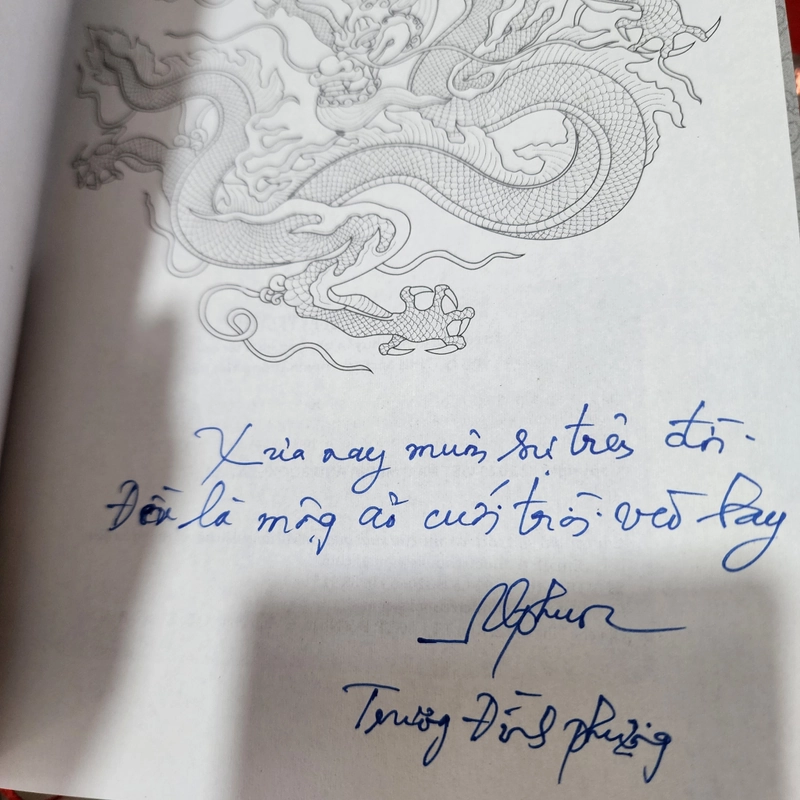 Xưa nay muôn sự trên đời.
Đều là mộng ảo cuối trời véo bay
Trương Đình Phượng